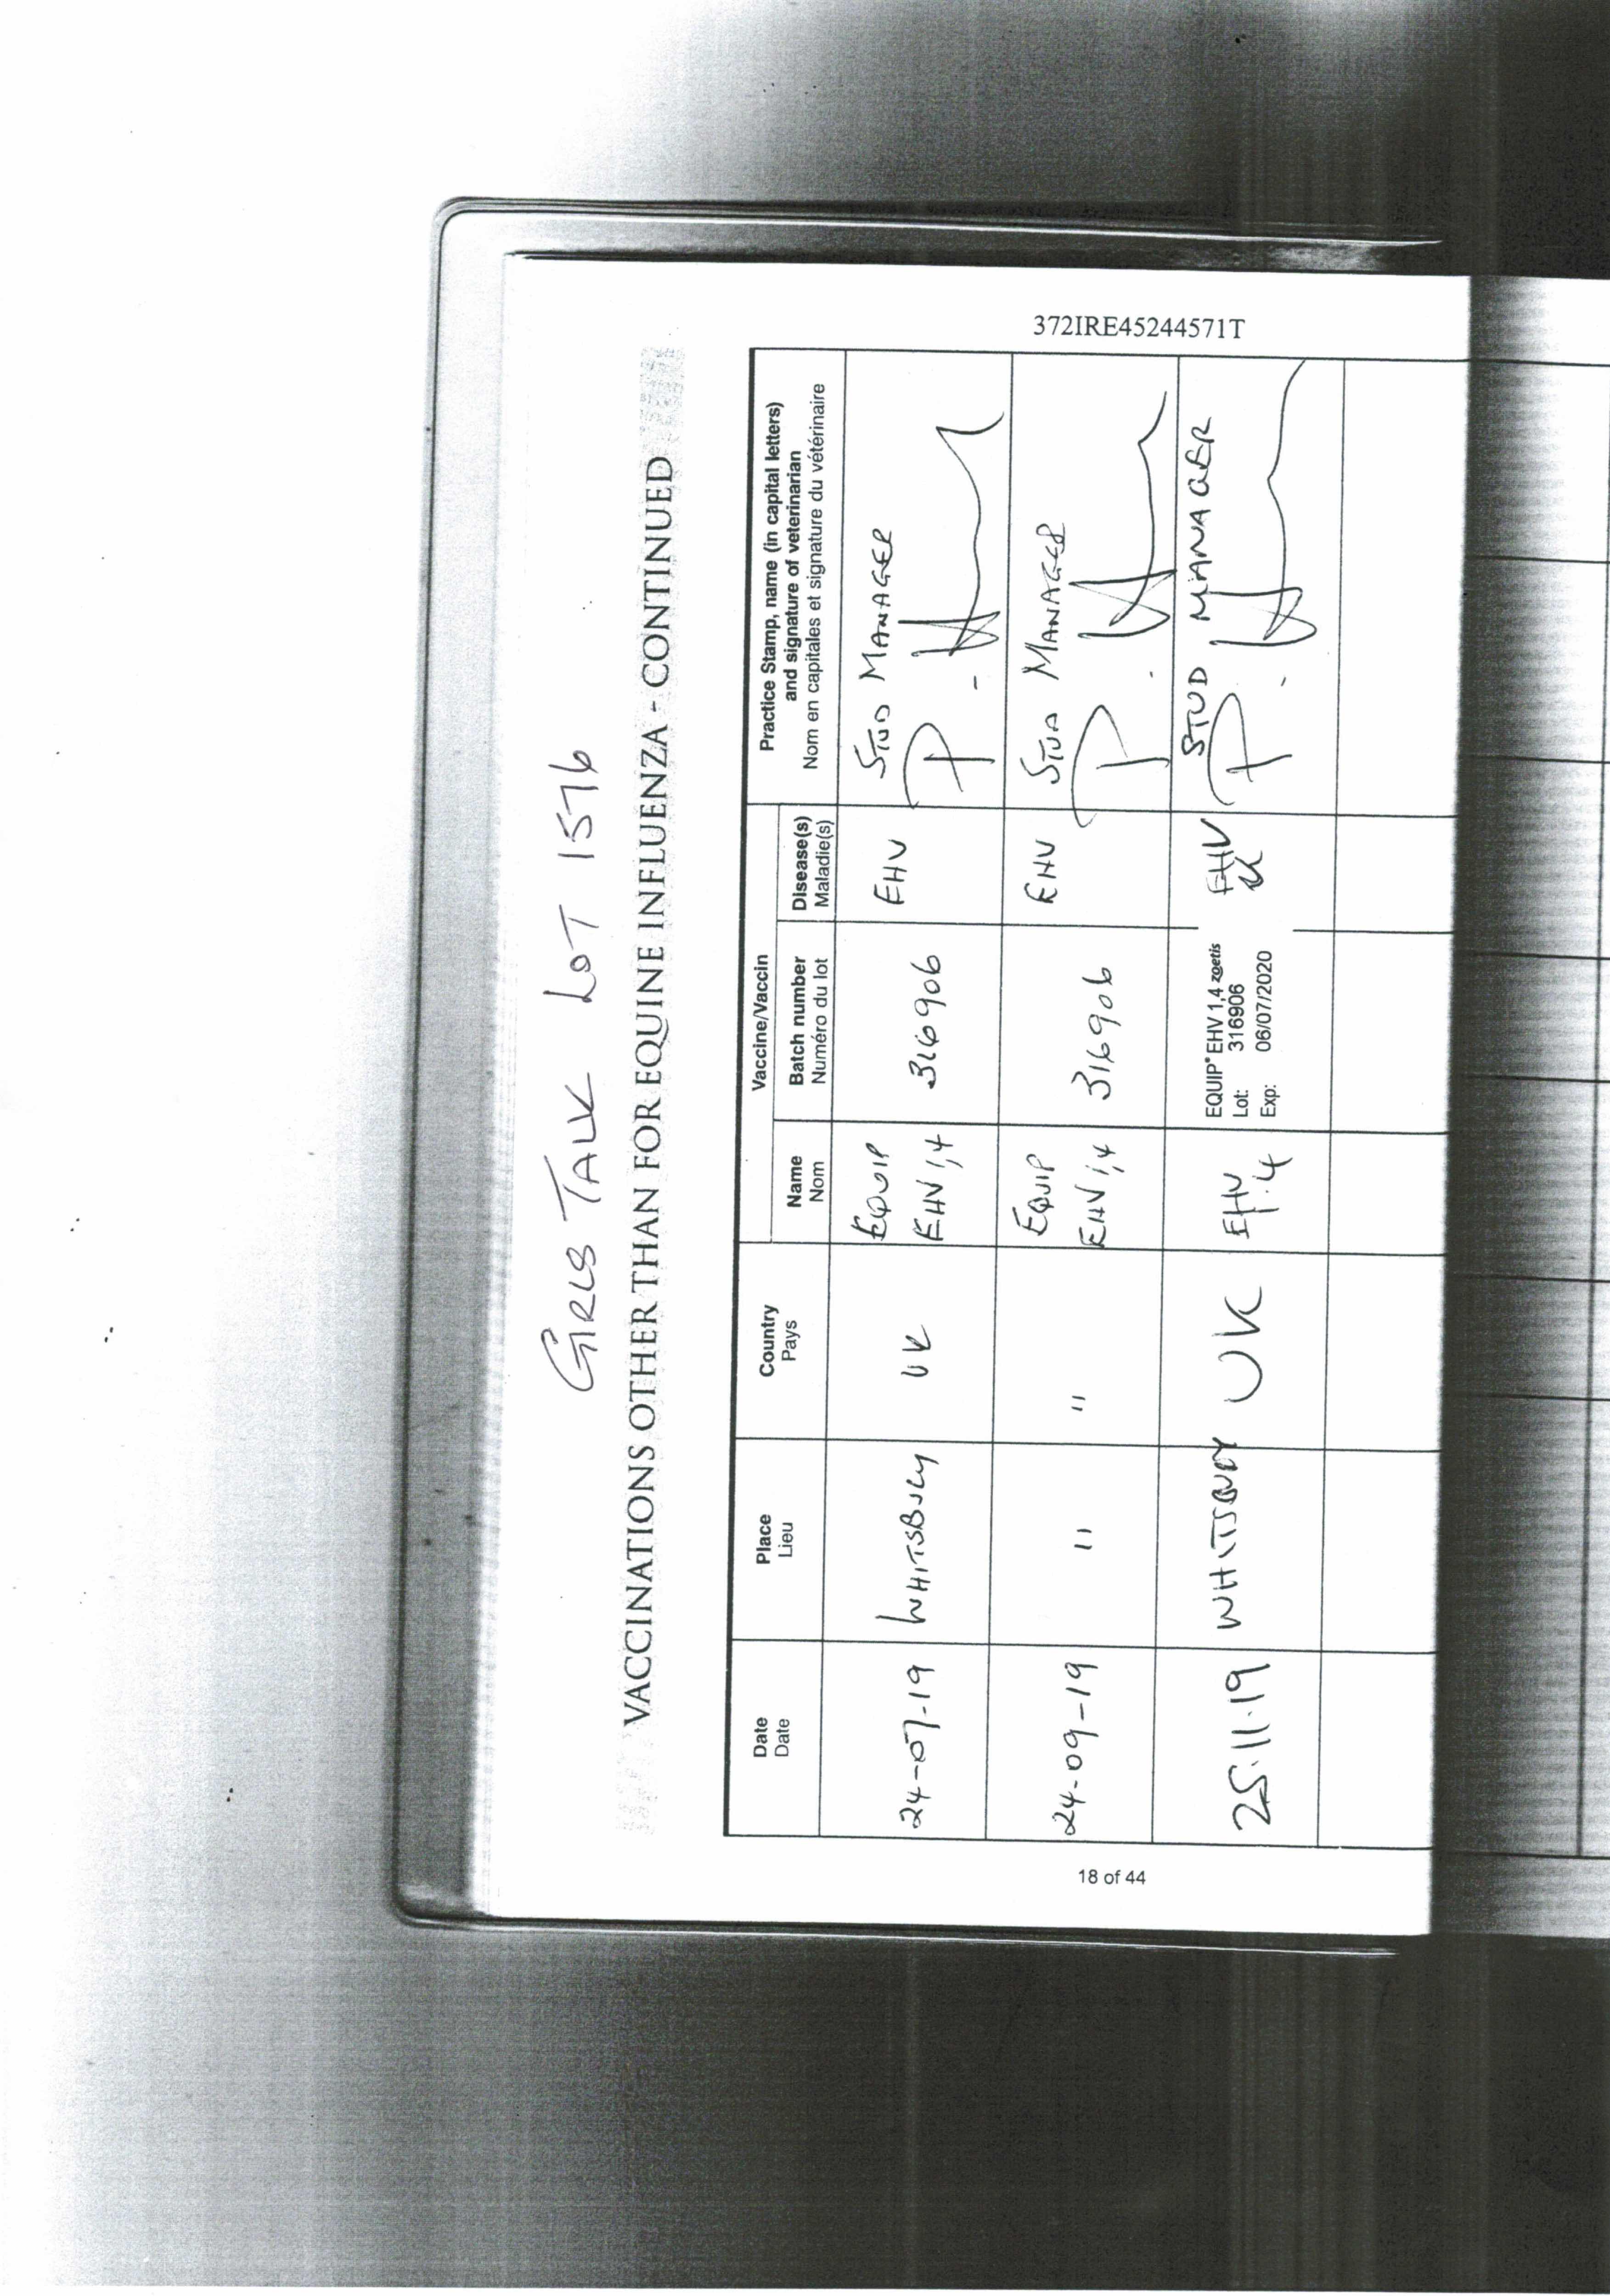 GIRLS TALK LOT 1576
VACCINATIONS OTHER THAN FOR EQUINE INFLUENZA - CONTINUED
Date
Date
Place
Lieu
Country
Pays
Vaccine/Vaccin
Name
Nom
Batch number
Numéro du lot
Disease(s)
Maladie(s)
Practice Stamp, name (in capital letters)
and signature of veterinarian
Nom en capitales et signature du vétérinaire
24-07-19 WHITSBURY UK EQUIP EHV 1,4 316906 EHV STUD MANAGER
24-09-19 " " EQUIP EHV 1,4 316906 EHV STUD MANAGER
25.11.19 WHITSBURY UK EHV 1.4
EQUIP® EHV 1,4 zoetis
Lot: 316906
Exp: 06/07/2020
EHV
STUD MANAGER
18 of 44
372IRE45244571T